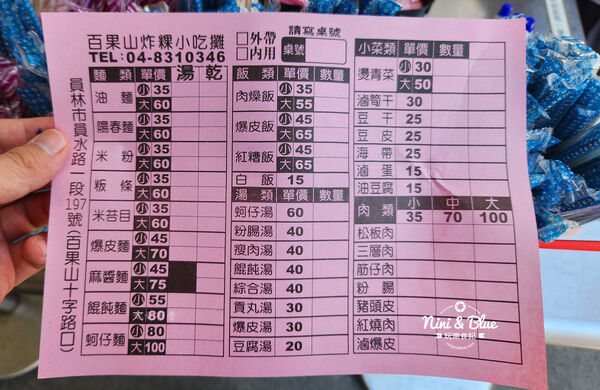 百果山炸粿小吃攤
TEL:04-8310346
□外帶
□內用
請寫桌號
桌號
員林市員水路一段197號(百果山十字路口)
麵類 單價 湯 乾
油麵 小 35
大 60
陽春麵 小 35
大 60
米粉 小 35
大 60
粄條 小 35
大 60
米苔目 小 35
大 60
爆皮麵 小 45
大 70
麻醬麵 小 45
大 75
餛飩麵 小 55
大 80
蚵仔麵 小 80
大 100
飯類 單價 數量
肉燥飯 小 35
大 55
爆皮飯 小 45
大 65
紅糟飯 小 45
大 65
白飯 15
湯類 單價 數量
蚵仔湯 60
粉腸湯 40
瘦肉湯 40
餛飩湯 40
綜合湯 40
貢丸湯 30
爆皮湯 30
豆腐湯 20
小菜類 單價 數量
燙青菜 小 30
大 50
滷筍干 30
豆干 25
豆皮 25
海帶 25
滷蛋 15
油豆腐 15
肉類 小 中 大
35 70 100
松板肉
三層肉
筋仔肉
粉腸
豬頭皮
紅燒肉
滷爆皮
Nini & Blue
玩樂食記